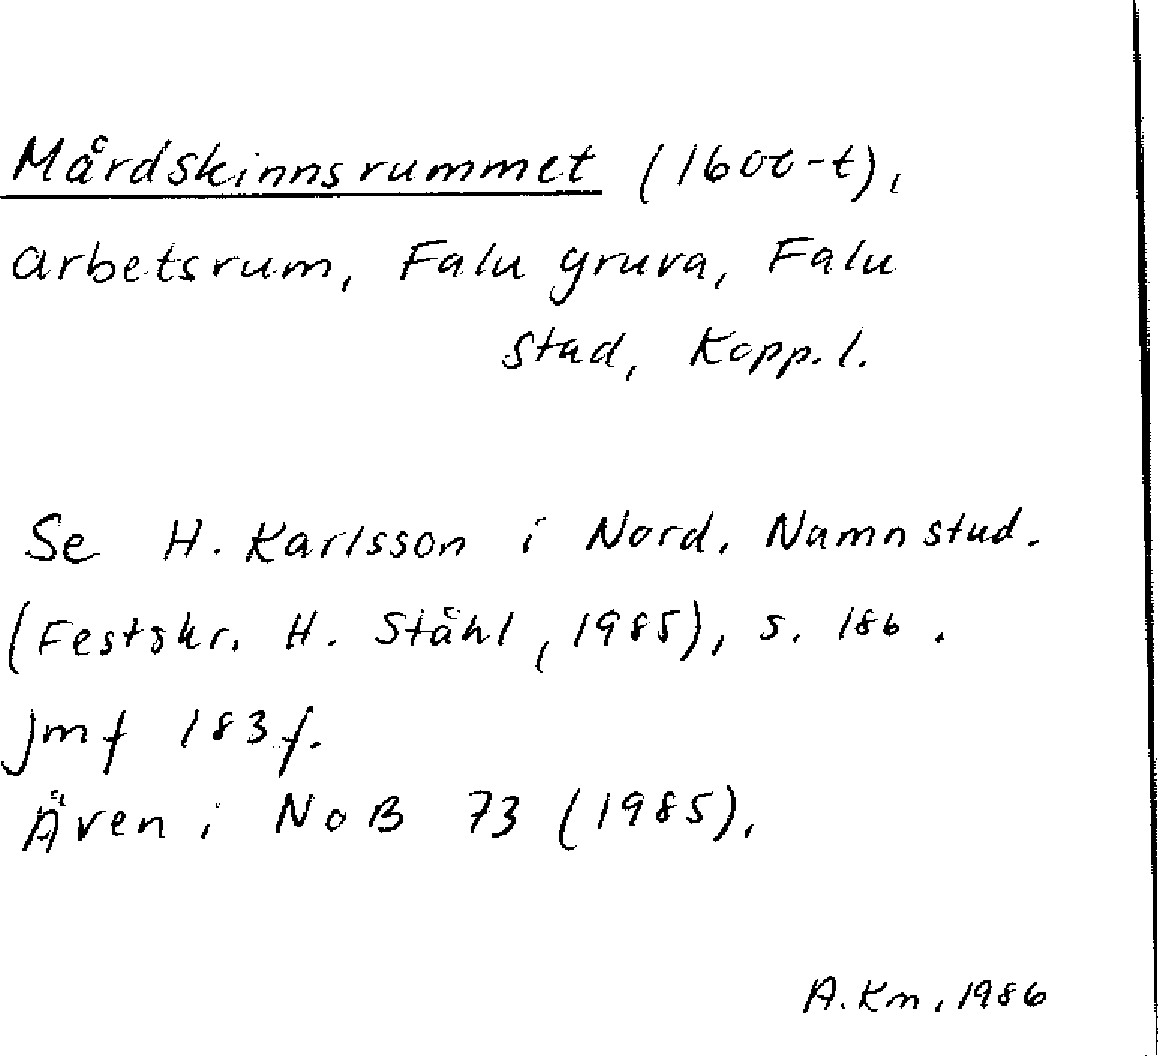 Mårdskinnsrummet (1600-t),
arbetsrum, Falu gruva, Falu
stad, Kopp. l.
Se H. Karlsson i Nord. Namnstud.
(Festskr. H. Ståhl, 1985), s. 186.
Jmf 183 f.
Även i NoB 73 (1985).
A. Km, 1986